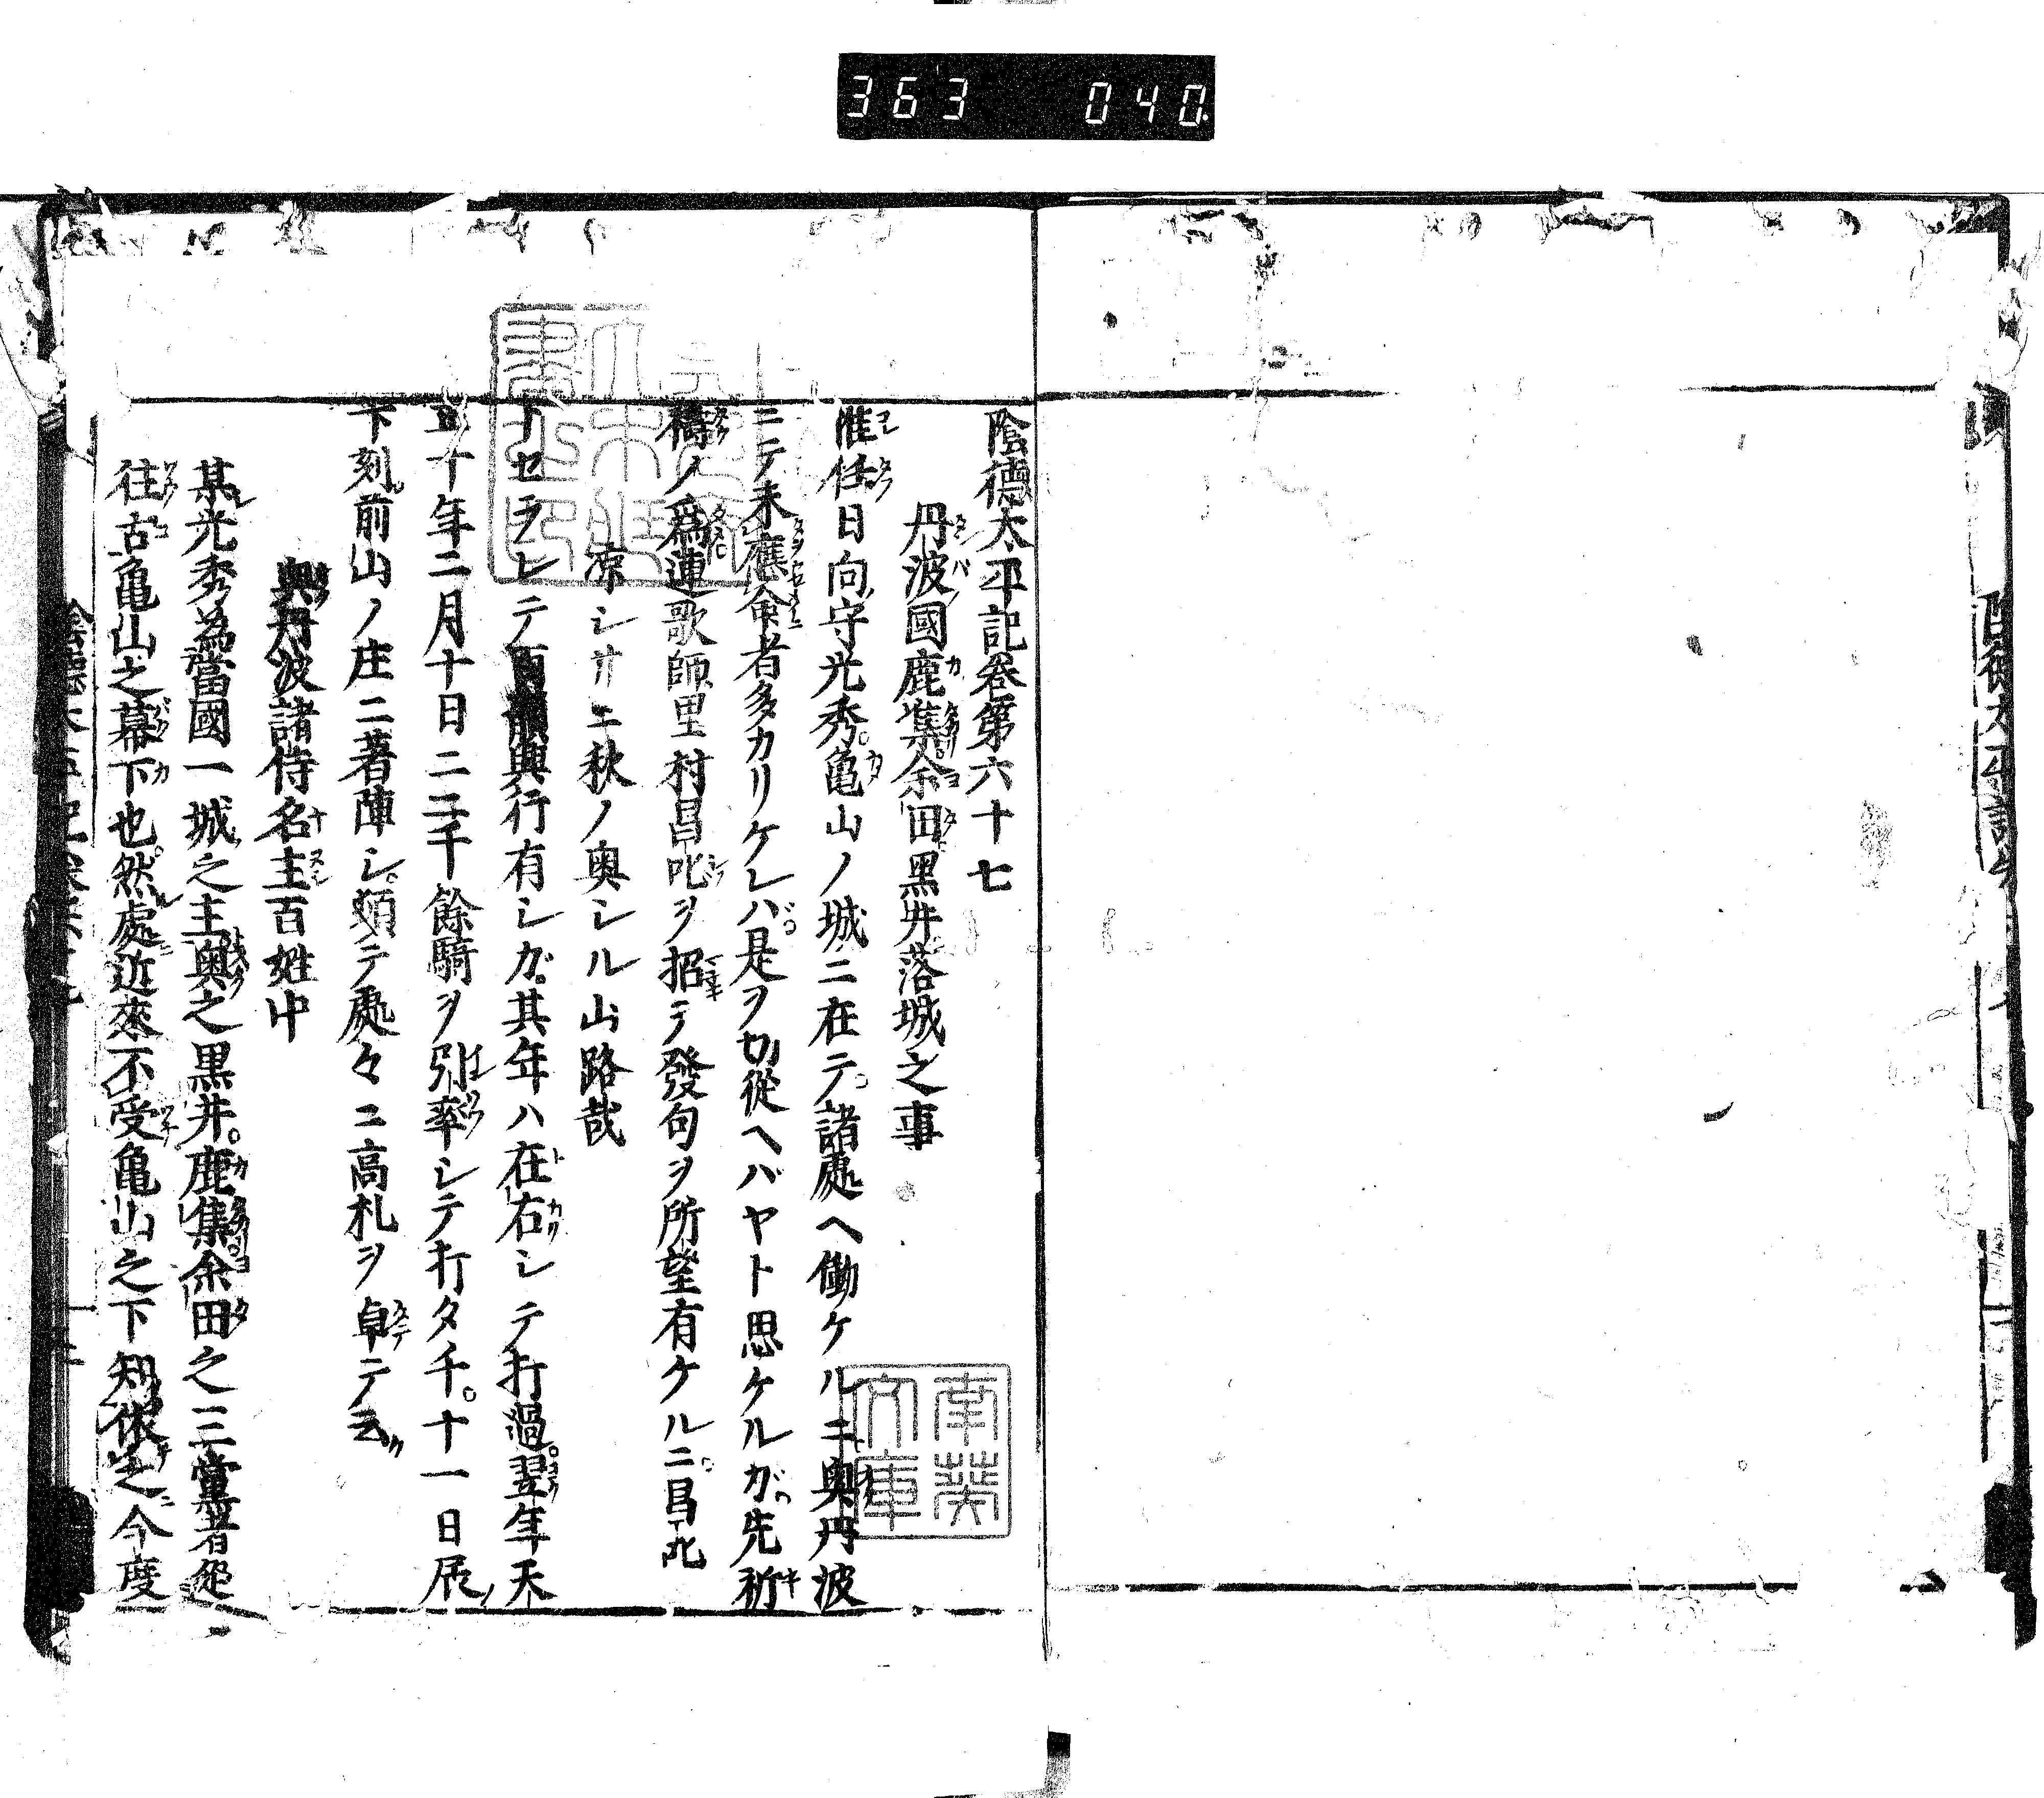 363 040
陰德太平記卷第六十七
丹波國鹿集余田黒井落城之事
惟任日向守光秀。亀山ノ城ニ在テ。諸處ヘ働ケルニ奥丹波
ニテ未應命者多カリケレハ。是ヲ切従ヘバヤト思ケルガ。先祈
禱ノ爲連歌師里村昌叱ヲ招テ發句ヲ所望有ケルニ。昌叱
凉シサニ秋ノ奥シル山路哉
トセラレテ百韻興行有シガ。其年ハ在右シテ打過。翌年天
正十年二月十日二三千餘騎ヲ引率シテ打タチ。十一日辰ノ
下刻。前山ノ庄ニ著陣シ。頓テ處々ニ高札ヲ卓テ云
與丹波諸侍名主百姓中
某光秀為當國一城之主奥之黒井。鹿集余田之三黨者
往古亀山之幕下也。然處近來不受亀山之下知依之今度
南葵
文庫